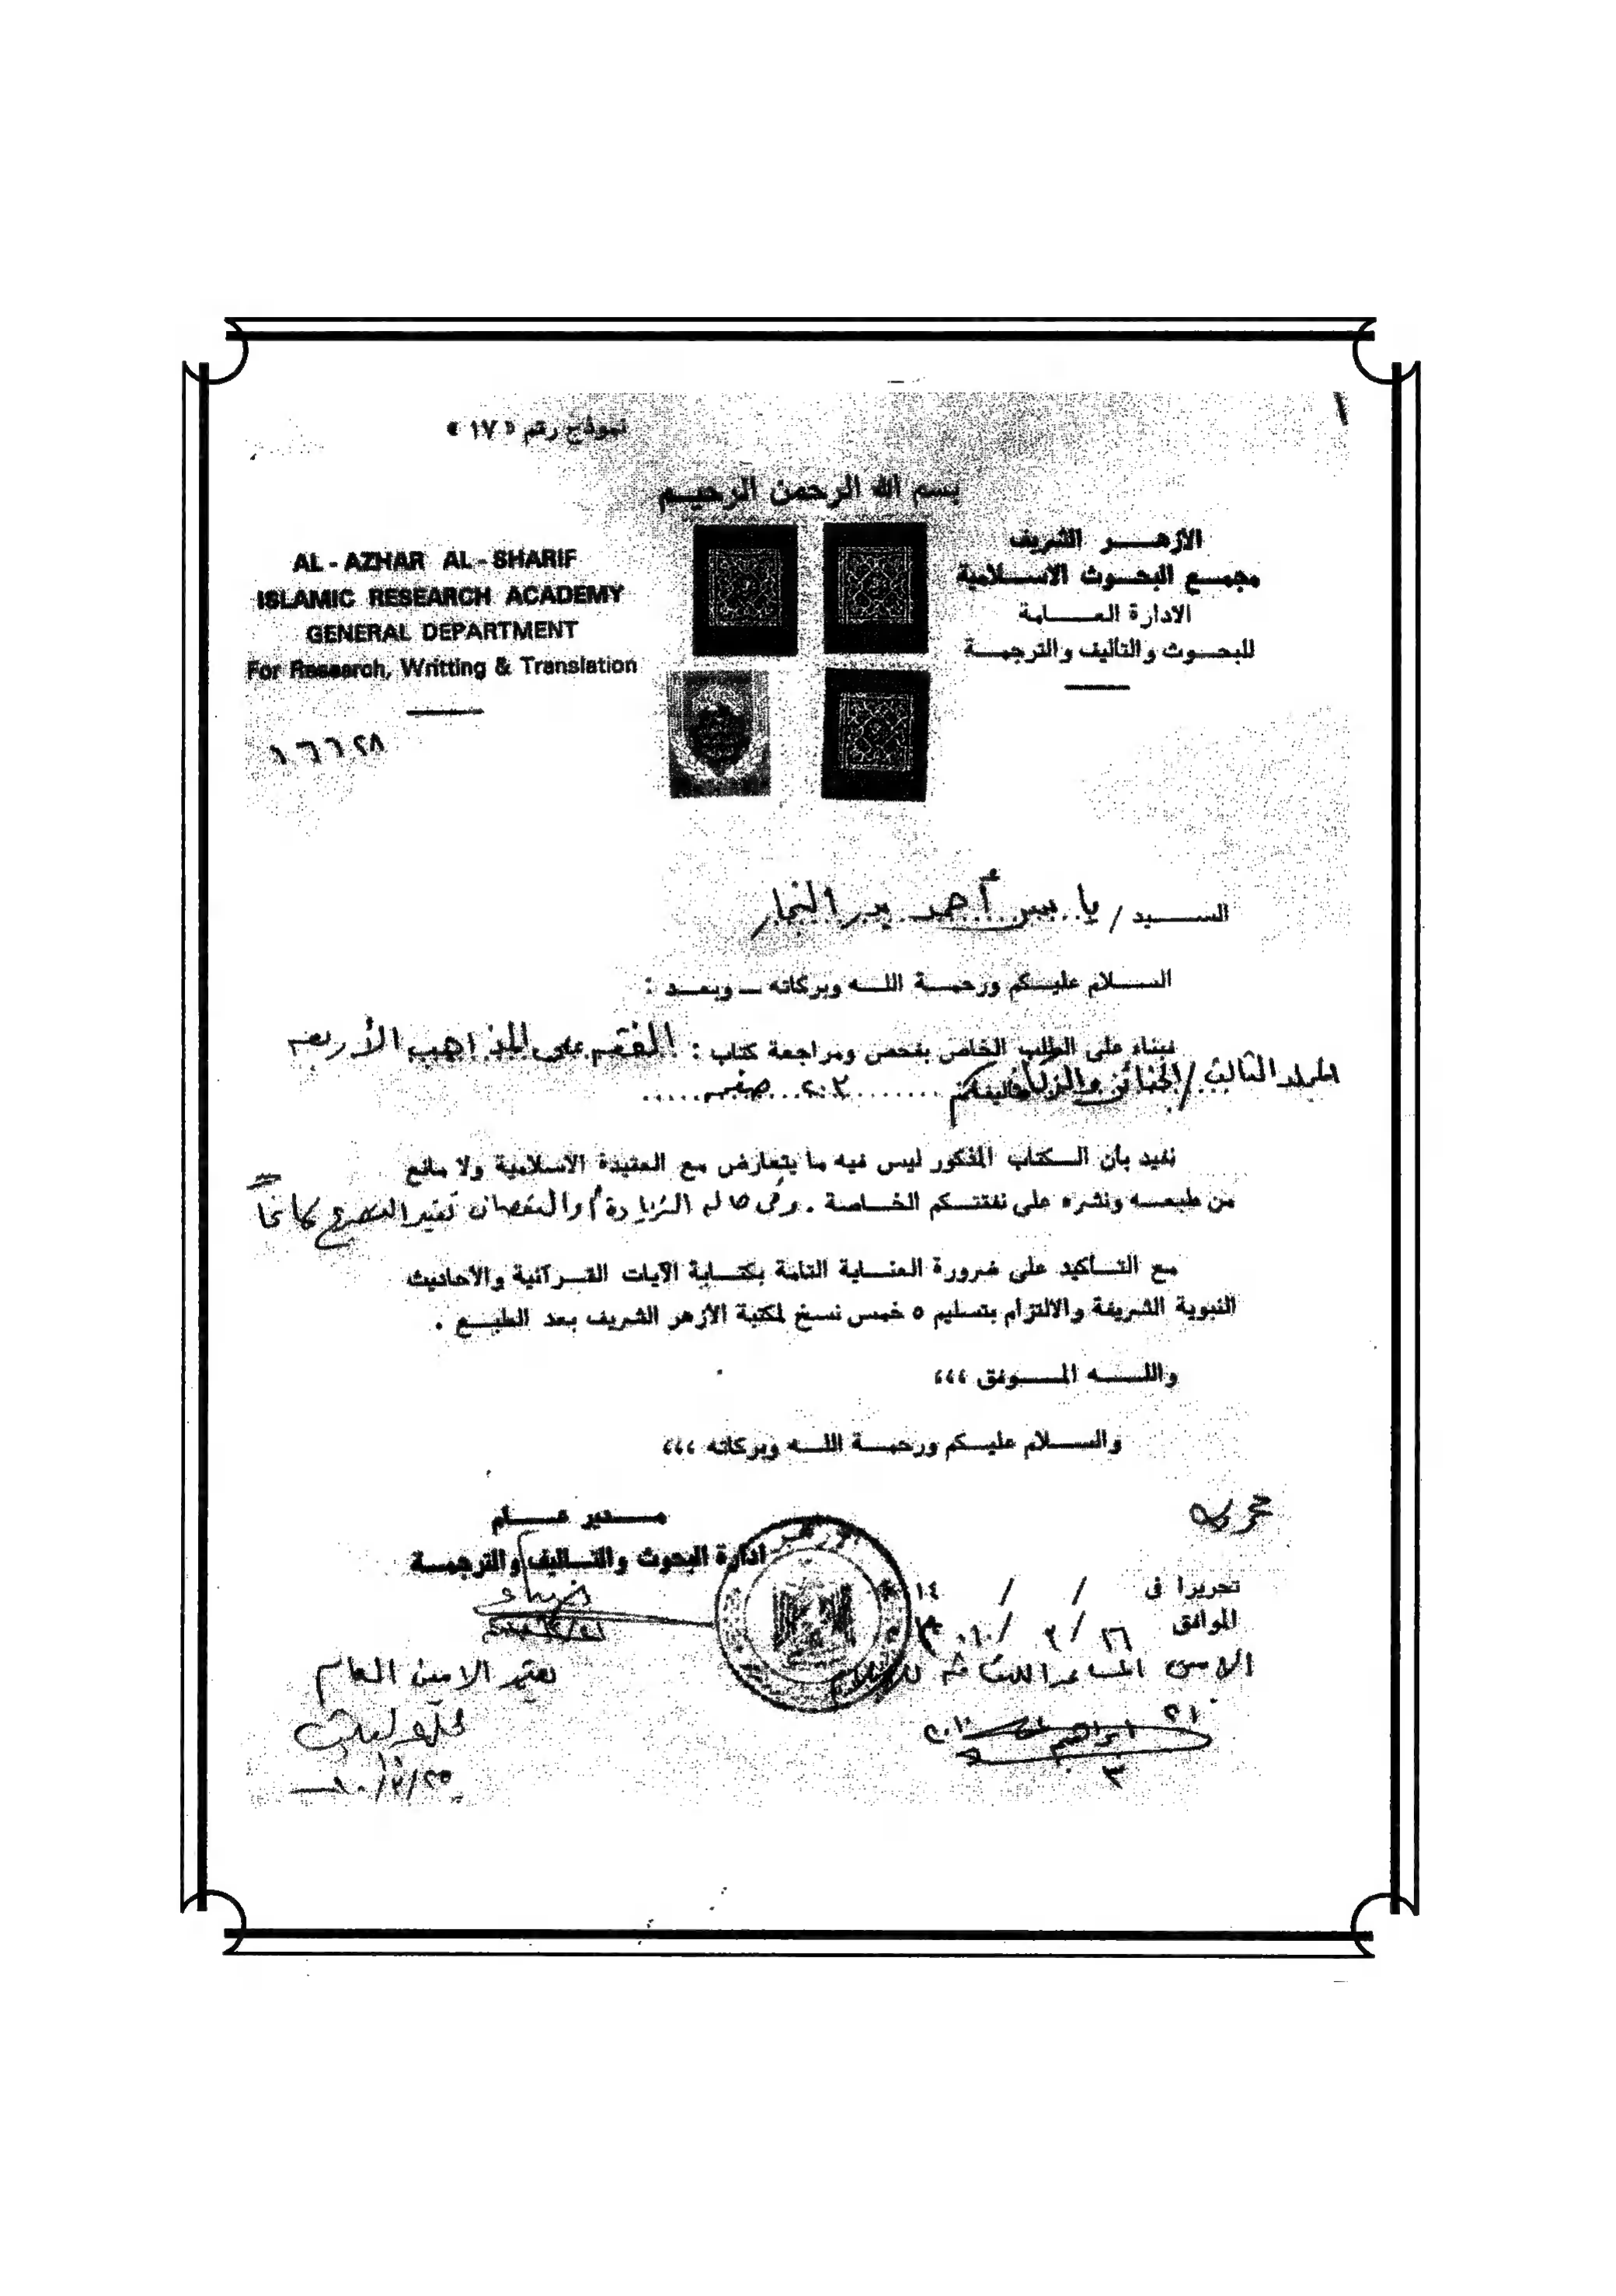 نموذج رقم « ١٧ »
بسم الله الرحمن الرحيم
الازهر الشريف
مجمع البحوث الاسلامية
الادارة العامة
للبحوث والتأليف والترجمة
AL - AZHAR AL - SHARIF
ISLAMIC RESEARCH ACADEMY
GENERAL DEPARTMENT
For Research, Writting & Translation
السيد / ياسر أحمد بدر النجار
السلام عليكم ورحمة الله وبركاته – وبعد :
فبناء على الطلب الخاص بفحص ومراجعة كتاب : الفقه على المذاهب الأربعة
المجلد الثالث / الجنائز والزكاة تأليفكم ٢٠٣ صفحه
نفيد بأن الكتاب المذكور ليس فيه ما يتعارض مع العقيدة الاسلامية ولا مانع
من طبعه ونشره على نفقتكم الخاصة . وفى حالة الزيادة أو النقصان يعتبر التصريح لاغياً
مع التأكيد على ضرورة العناية التامة بكتابة الآيات القرآنية والأحاديث
النبوية الشريفة والالتزام بتسليم ٥ خمس نسخ لمكتبة الأزهر الشريف بعد الطبع .
والله الموفق ،،،
والسلام عليكم ورحمة الله وبركاته ،،،
مدير عام
ادارة البحوث والتأليف والترجمة
تحريرا فى / / ١٤
الموافق
يعتمد الامين العام